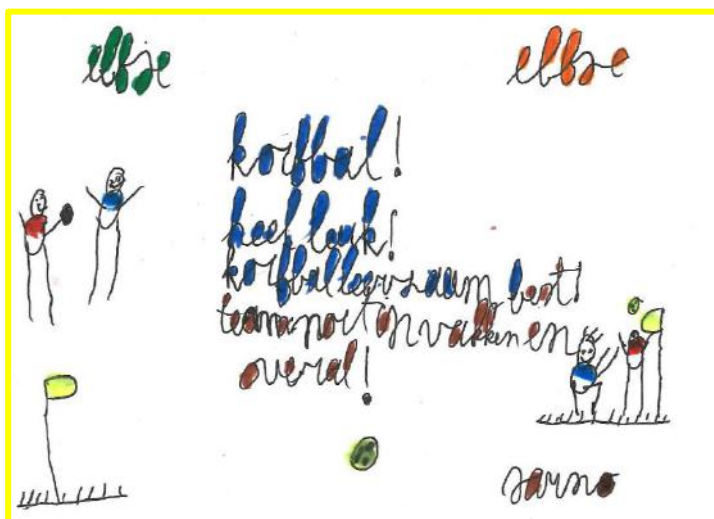 elfje elfje
korfbal!
heel leuk!
korfbal leerzaam best!
teamsport in vakken en
overal!
jarno